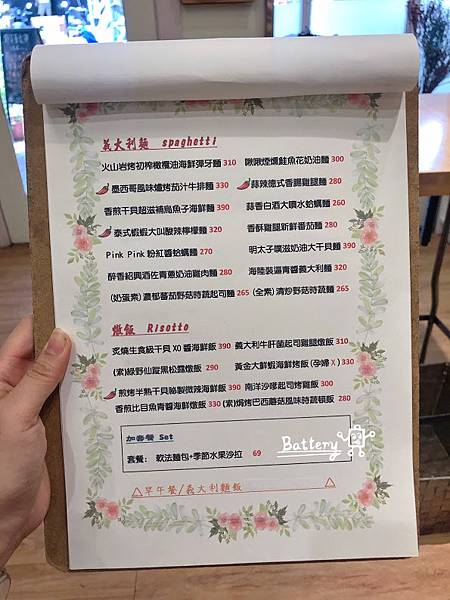 義大利麵 spaghetti
火山岩烤初榨橄欖油海鮮彈牙麵 310 啾啾煙燻鮭魚花奶油麵 300
墨西哥風味爐烤茄汁牛排麵 330 蒜辣德式香腸雞腿麵 280
香煎干貝超滋補烏魚子海鮮麵 390 蒜香白酒大噴水蛤蠣麵 260
泰式蝦蝦大叫酸辣檸檬麵 320 香酥雞腿新鮮番茄麵 280
Pink Pink 粉紅醬蛤蠣麵 270 明太子噗滋奶油大干貝麵 390
醉香紹興酒佐青蔥奶油雞肉麵 280 海陸裝逼青醬義大利麵 320
(奶蛋素) 濃郁蕃茄野菇時蔬起司麵 265 (全素) 清炒野菇時蔬麵 265
燉飯 Risotto
炙燒生食級干貝 XO 醬海鮮飯 390 義大利牛肝菌起司雞腿燉飯 310
(素)綠野仙蹤黑松露燉飯 290 黃金大鮮蝦海鮮烤飯 (孕婦 X ) 330
煎烤半熟干貝祕製微辣海鮮飯 390 南洋沙嗲起司烤雞飯 300
香煎比目魚青醬海鮮燉飯 330 (素)焗烤巴西蘑菇風味時蔬燉飯 280
加套餐 Set
套餐: 軟法麵包+季節水果沙拉 69
Battery
△早午餐/義大利麵飯△